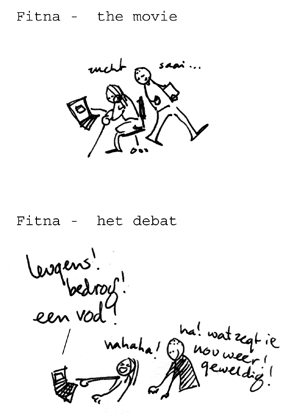 Fitna - the movie
zucht
saai...
Fitna - het debat
leugens!
bedrog!
een vod!
hahaha!
ha! wat zegt ie
nou weer!
geweldig!